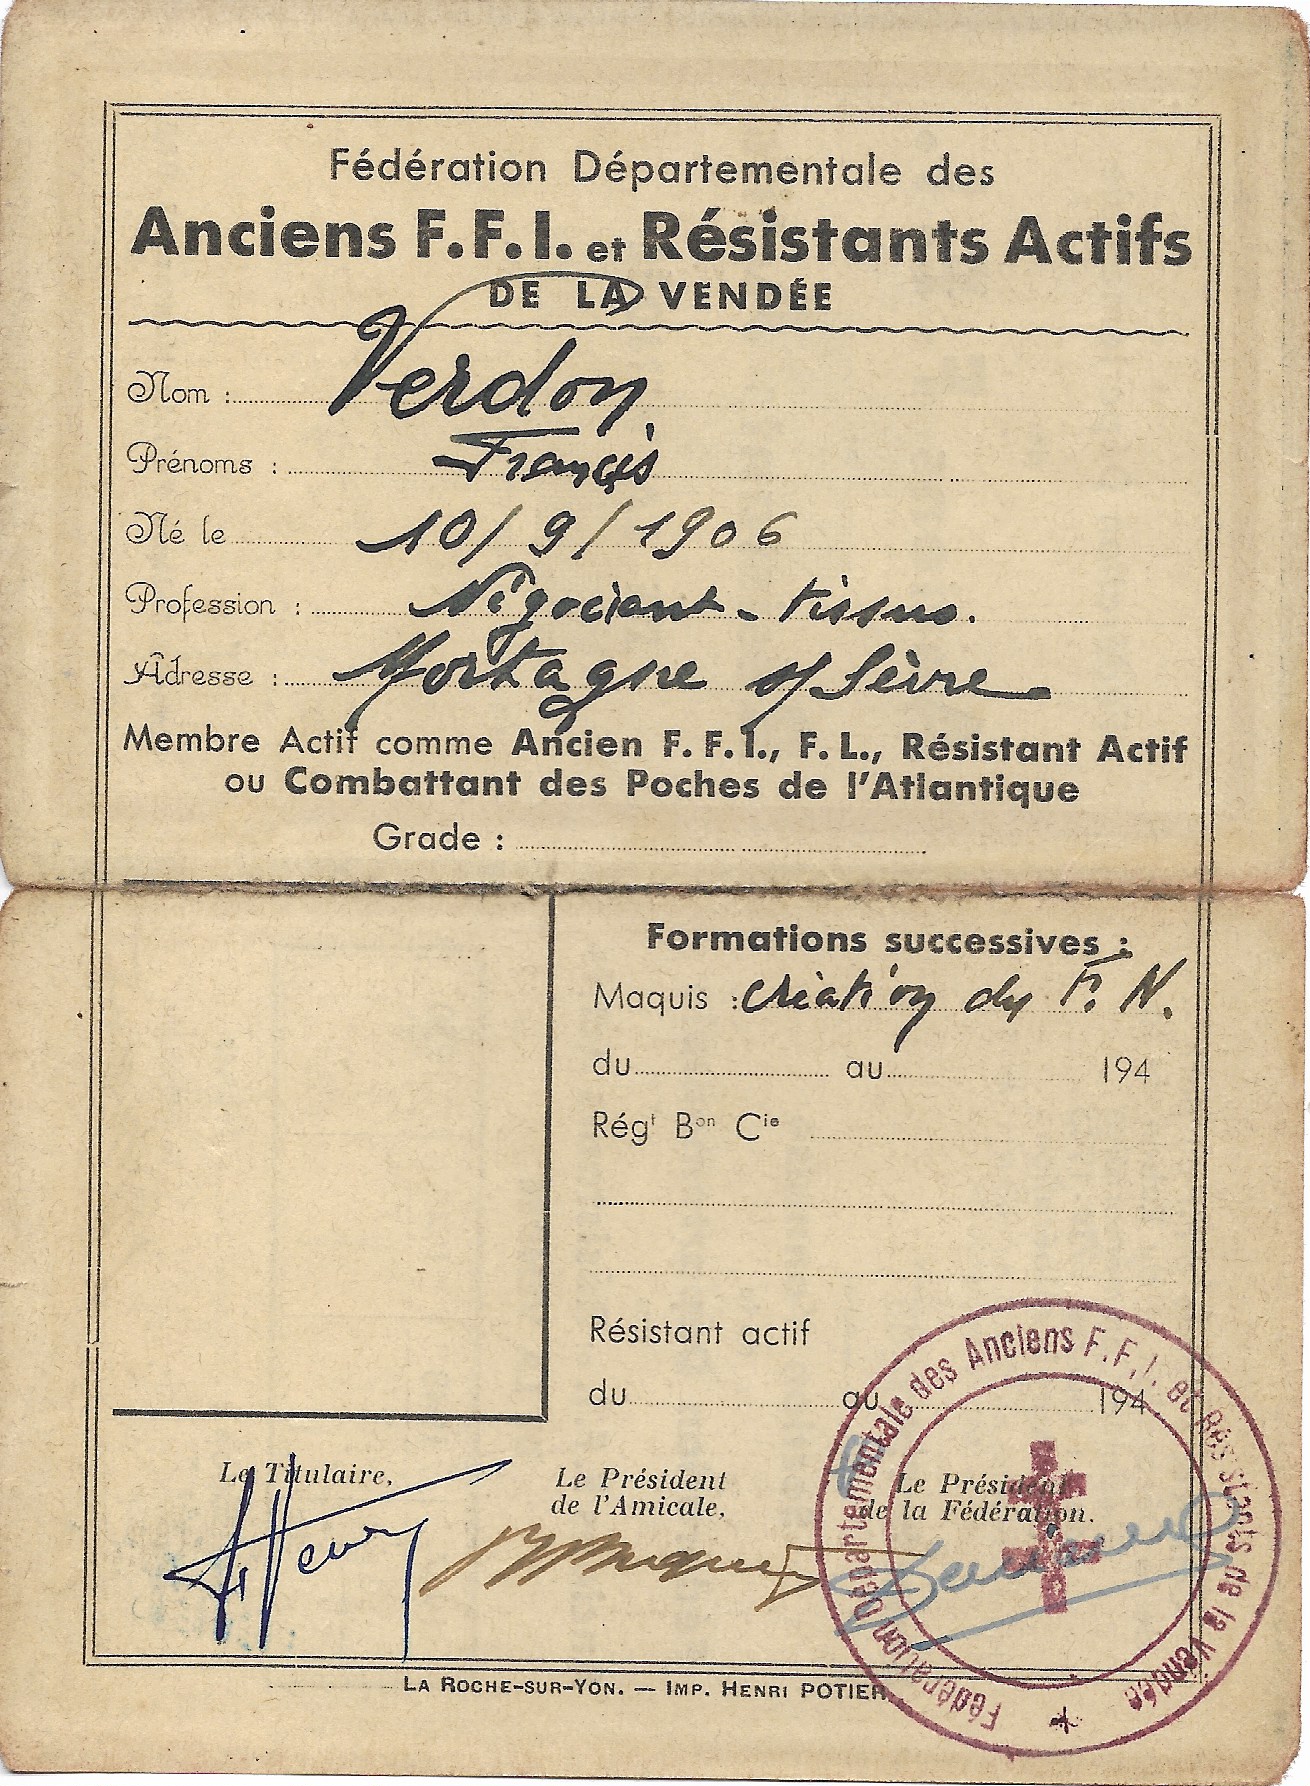 Fédération Départementale des
Anciens F.F.I. et Résistants Actifs
DE LA VENDÉE
Nom : Verdon
Prénoms : Francis
Né le 10/9/1906
Profession : Négociant - tissus.
Adresse : Mortagne s/ Sèvre
Membre Actif comme Ancien F. F. I., F. L., Résistant Actif
ou Combattant des Poches de l'Atlantique
Grade :
Formations successives :
Maquis : création du F. N.
du au 194
Régt Bon Cie
Résistant actif
du au 194
Le Titulaire,
Le Président
de l'Amicale,
Le Président
de la Fédération.
Fédération Départementale des Anciens F.F.I. et Résistants de la Vendée
LA ROCHE-SUR-YON. — IMP. HENRI POTIER